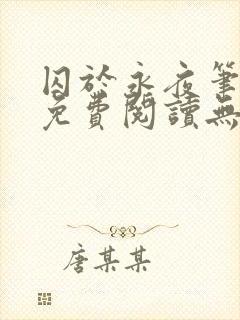 囚於永夜筆
免費閱讀無
唐某某